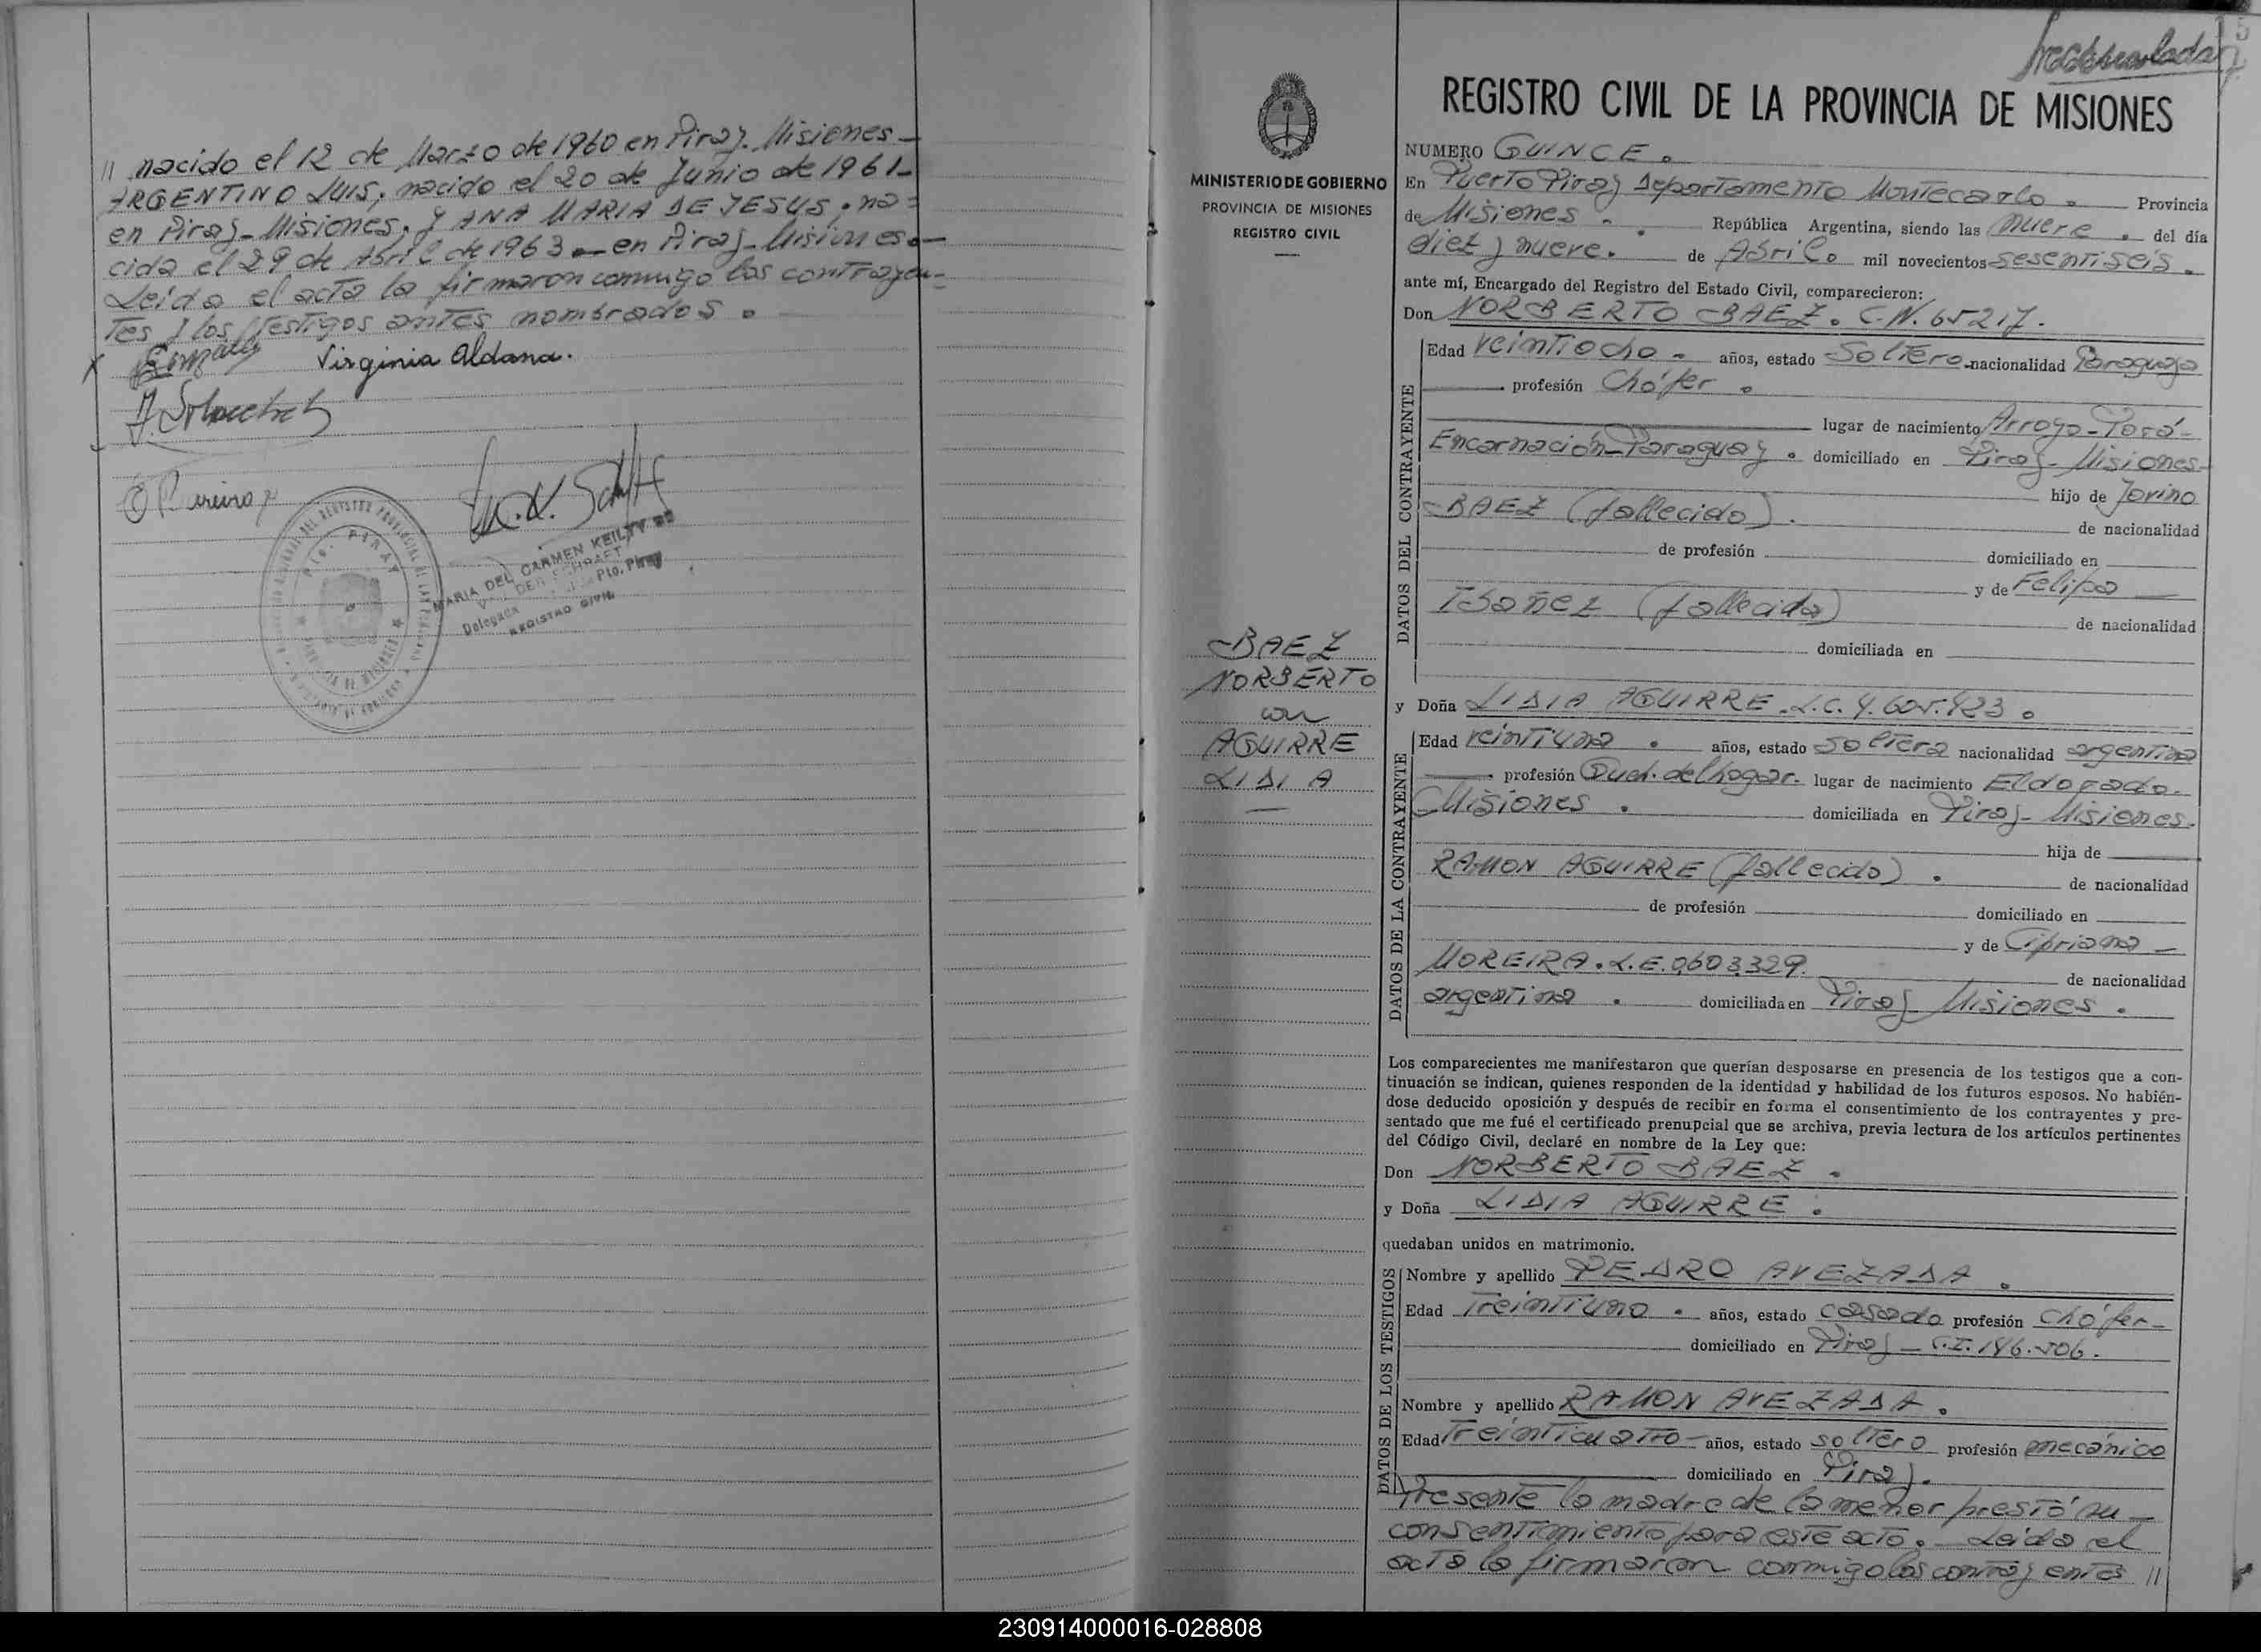 // nacido el 12 de Marzo de 1960 en Piray. Misiones -
ARGENTINO LUIS, nacido el 20 de Junio de 1961-
en Piray - Misiones. y ANA MARIA DE JESUS, na-
cida el 29 de Abril de 1963 - en Piray - Misiones.-
Leida el acta la firmaron conmigo los contrayen-
tes y los testigos antes nombrados.
Virginia Aldana.
MARIA DEL CARMEN KEILTY DE
VAN DER SCHRAFT
Delegada Pto. Piray
REGISTRO CIVIL
PTO. PIRAY
MINISTERIO DE GOBIERNO
PROVINCIA DE MISIONES
REGISTRO CIVIL
BAEZ
NORBERTO
con
AGUIRRE
LIDIA
REGISTRO CIVIL DE LA PROVINCIA DE MISIONES
NUMERO QUINCE.
En Puerto Piray Departamento Montecarlo. Provincia
de Misiones. República Argentina, siendo las nueve. del día
diez y nueve. de Abril. mil novecientos sesentiseis.
ante mí, Encargado del Registro del Estado Civil, comparecieron:
Don NORBERTO BAEZ. C.N. 65217.
DATOS DEL CONTRAYENTE
Edad veintiocho. años, estado Soltero nacionalidad Paraguaya
profesión Chófer.
lugar de nacimiento Arroyo-Porá-
Encarnación-Paraguay. domiciliado en Piray-Misiones-
hijo de Jovino
BAEZ (fallecido). de nacionalidad
de profesión domiciliado en
y de Felipa
Ibañez (fallecida) de nacionalidad
domiciliada en
y Doña LIDIA AGUIRRE. L.C. 4.605.423.
DATOS DE LA CONTRAYENTE
Edad veintiuna. años, estado soltera nacionalidad argentina
profesión Queh. del hogar. lugar de nacimiento Eldorado.
Misiones. domiciliada en Piray-Misiones.
hija de
RAMON AGUIRRE (fallecido). de nacionalidad
de profesión domiciliado en
y de Cipriana
MOREIRA. L.E. 0603.329. de nacionalidad
argentina. domiciliada en Piray Misiones.
Los comparecientes me manifestaron que querían desposarse en presencia de los testigos que a con-
tinuación se indican, quienes responden de la identidad y habilidad de los futuros esposos. No habién-
dose deducido oposición y después de recibir en forma el consentimiento de los contrayentes y pre-
sentado que me fué el certificado prenupcial que se archiva, previa lectura de los artículos pertinentes
del Código Civil, declaré en nombre de la Ley que:
Don NORBERTO BAEZ.
y Doña LIDIA AGUIRRE.
quedaban unidos en matrimonio.
DATOS DE LOS TESTIGOS
Nombre y apellido PEDRO AVEZADA.
Edad Treintiuno. años, estado casado profesión chófer-
domiciliado en Piray - C.I. 146.506.
Nombre y apellido RAMON AVEZADA.
Edad Treinticuatro- años, estado soltero profesión mecánico
domiciliado en Piray.
Presente la madre de la menor prestó su
consentimiento para este acto. Leida el
acta la firmaron conmigo los contrayentes //
230914000016-028808